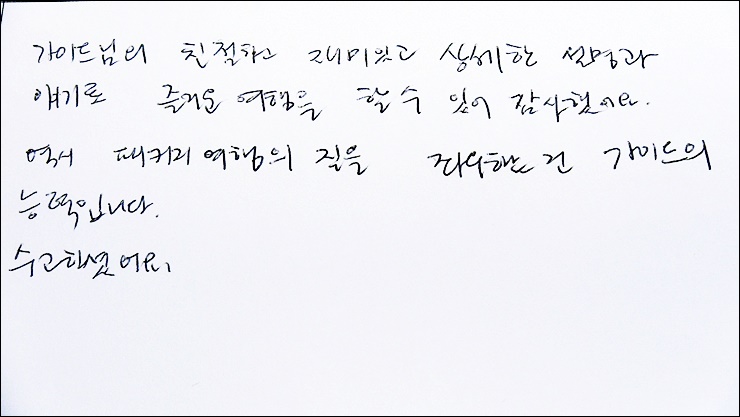 가이드님의 친절하고 재미있고 상세한 설명과
얘기로 즐거운 여행을 할 수 있어 감사했어요.
역시 패키지 여행의 질을 좌우하는 건 가이드의
능력입니다.
수고하셨어요.